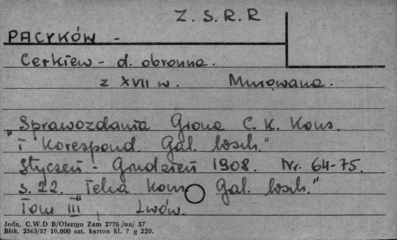 Z. S. R. R
PACYKÓW -
Cerkiew - d. obronna.
z XVII w. Murowana.
„Sprawozdania Grona C. K. Kons.
i Korespond. Gal. wsch."
Styczeń - Grudzień 1908. Nr. 64-75.
s. 22. Teka Kons. Gal. wsch."
Tom III Lwów.
Jedn. C.W.D B/Olsztyn Zam 2776 /on/ 57
Błtk. 2563/57 10.000 szt. karton kl. 7 g 220.